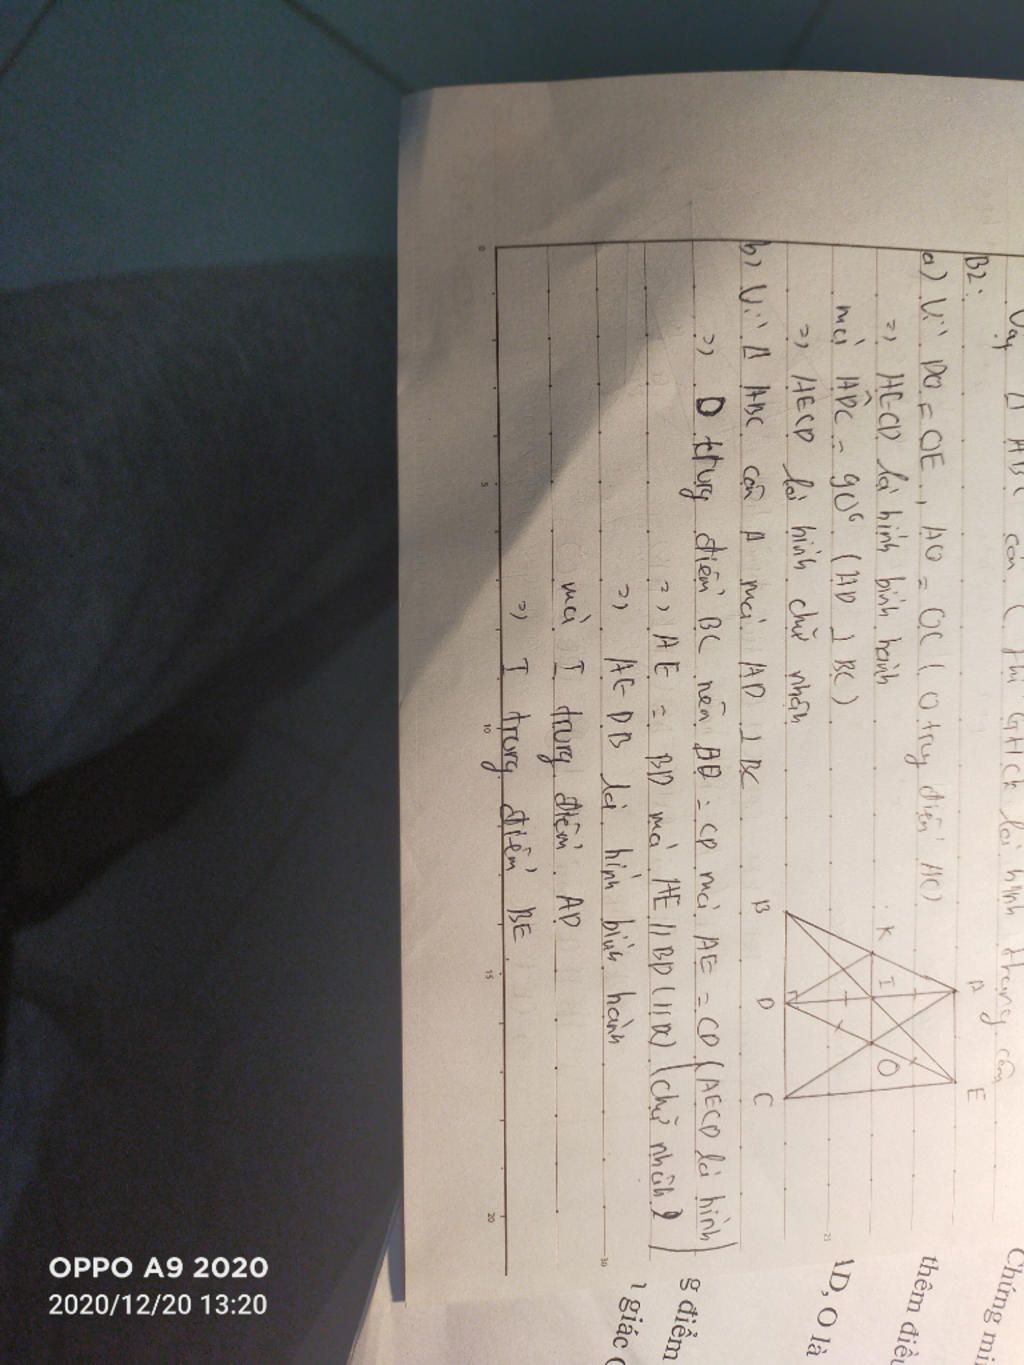 Vậy Δ ABC cân C thì GHCK là hình thang cân
B2:
a) Vì DO = OE, AO = OC (O trung điểm AC)
=> AECD là hình bình hành
mà ADC = 90° (AD ⊥ BC)
=> AECD là hình chữ nhân
b) Vì Δ ABC cân A mà AD ⊥ BC
=> D trung điểm BC nên BD = CD mà AE = CD (AECD là hình
=> AE = BD mà AE // BD (// DC) chữ nhân)
=> AEDB là hình bình hành
mà I trung điểm AD
=> I trung điểm BE
A
E
K
I
O
B
D
C
0
5
10
15
20
25
30
Chứng mi
thêm điề
D, O là
g điểm
giác
OPPO A9 2020
2020/12/20 13:20